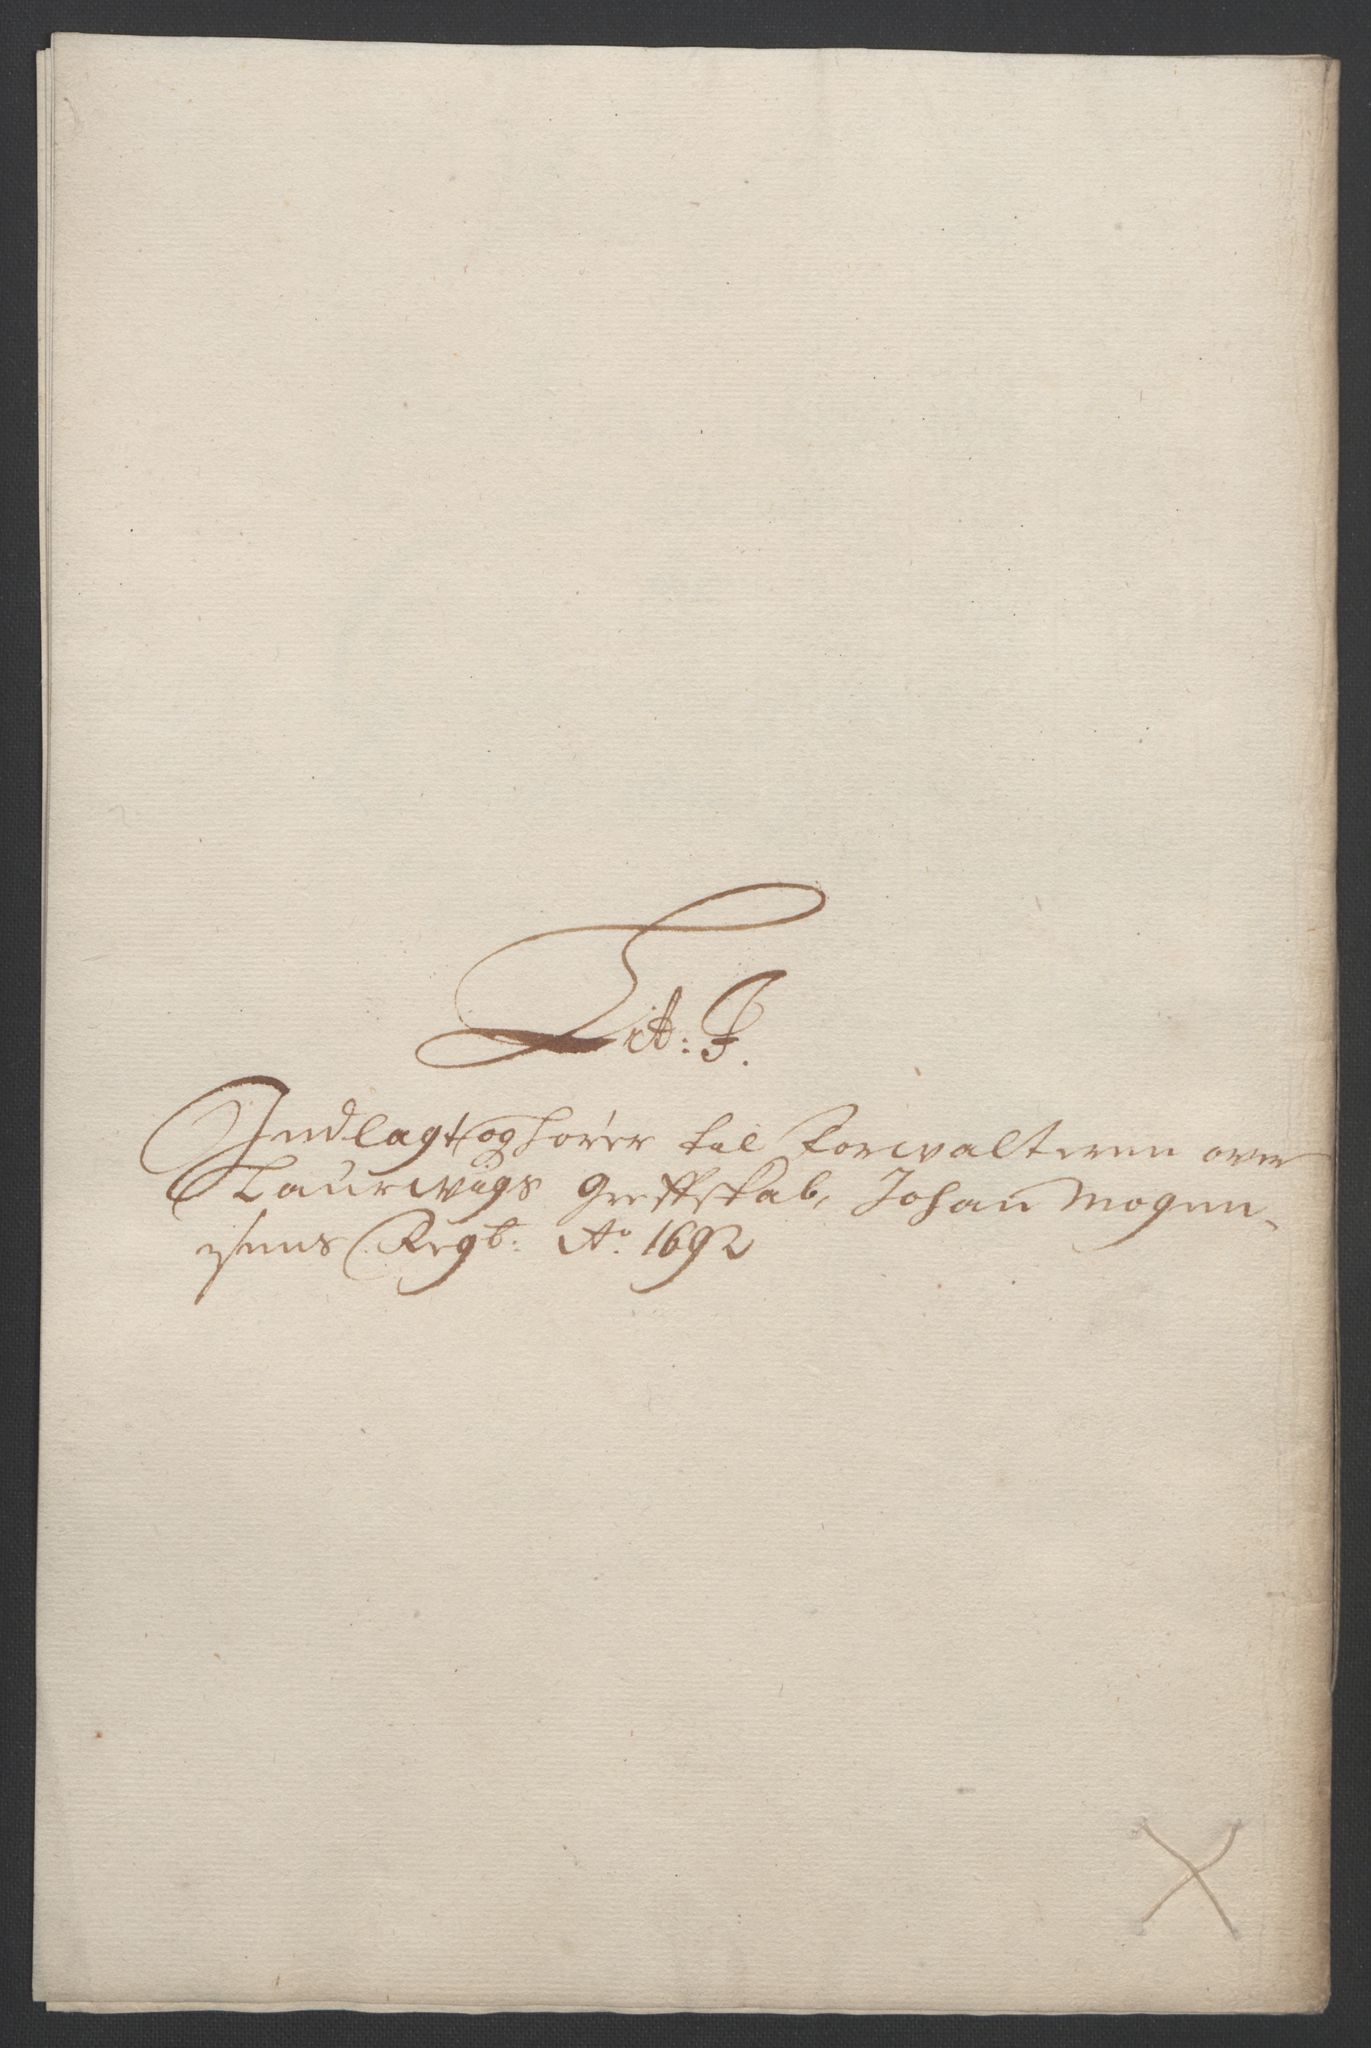 Lit: F.
Indlagt og hører til Forwalteren over
Laurwigs Greffskab, Johan Mogen-
sens Regb: Ao. 1692